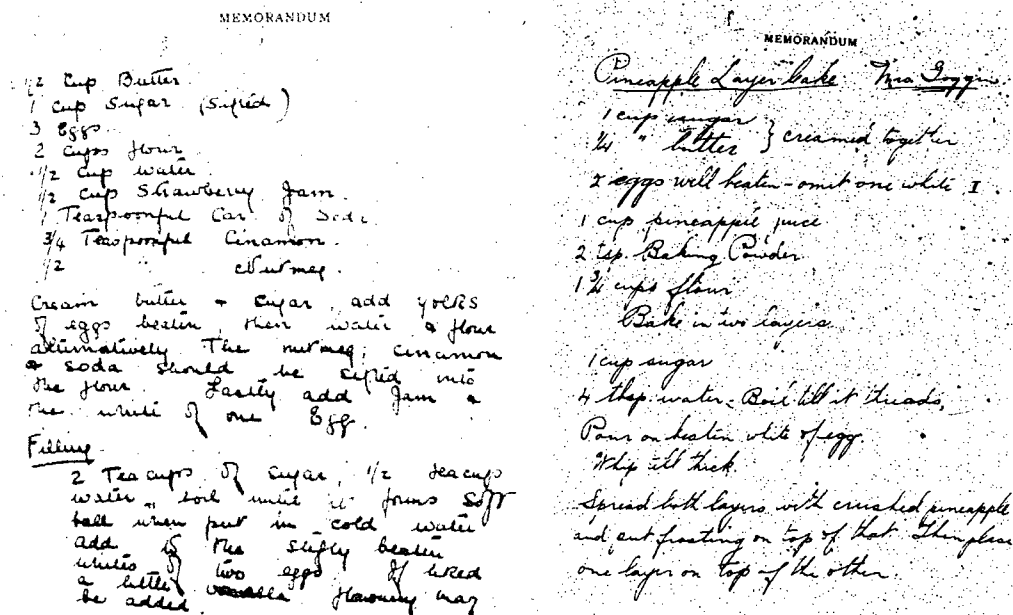 MEMORANDUM
1/2 Cup Butter
1 Cup Sugar (Sifted)
3 Eggs
2 Cups flour
1/2 Cup water
1/2 Cup Strawberry Jam
1 Teaspoonful Car. of Soda
3/4 Teaspoonful Cinamon.
1/2 " Nutmeg.
Cream butter + sugar, add yolks
of eggs beaten, then water & flour
alternatively The nutmeg, cinnamon
& soda should be sifted into
the flour. Lastly add Jam &
the white of one Egg.
Filling
2 Teacups of sugar, 1/2 teacups
water, boil until it forms soft
ball when put in cold water
add to the stifly beaten
whites of two eggs. If liked
a little vanilla flavouring may
be added.
MEMORANDUM
Pineapple Layer Cake Mrs Goggin
1 cup sugar
1/4 " butter } creamed together
2 eggs well beaten - omit one white
1 cup pineapple juice
2 tsp. Baking Powder
1 3/4 cups flour
Bake in two layers
1 cup sugar
4 tbsp. water - Boil till it threads,
Pour on beaten white of egg.
Whip till thick.
Spread both layers with crushed pineapple
and put frosting on top of that. Then place
one layer on top of the other.